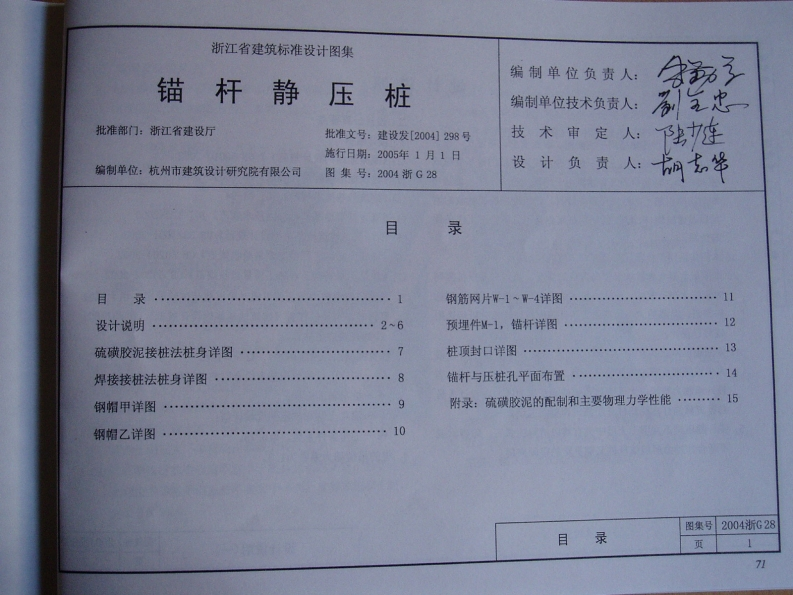 浙江省建筑标准设计图集
锚杆静压桩
批准部门：浙江省建设厅
批准文号：建设发[2004]298号
施行日期：2005年1月1日
编制单位：杭州市建筑设计研究院有限公司
图集号：2004浙G28
编制单位负责人：
编制单位技术负责人：
技术审定人：
设计负责人：胡志华
目录
目录 1
设计说明 2~6
硫磺胶泥接桩法桩身详图 7
焊接接桩法桩身详图 8
钢帽甲详图 9
钢帽乙详图 10
钢筋网片W-1~W-4详图 11
预埋件M-1，锚杆详图 12
桩顶封口详图 13
锚杆与压桩孔平面布置 14
附录：硫磺胶泥的配制和主要物理力学性能 15
目录
图集号 2004浙G28
页 1
71